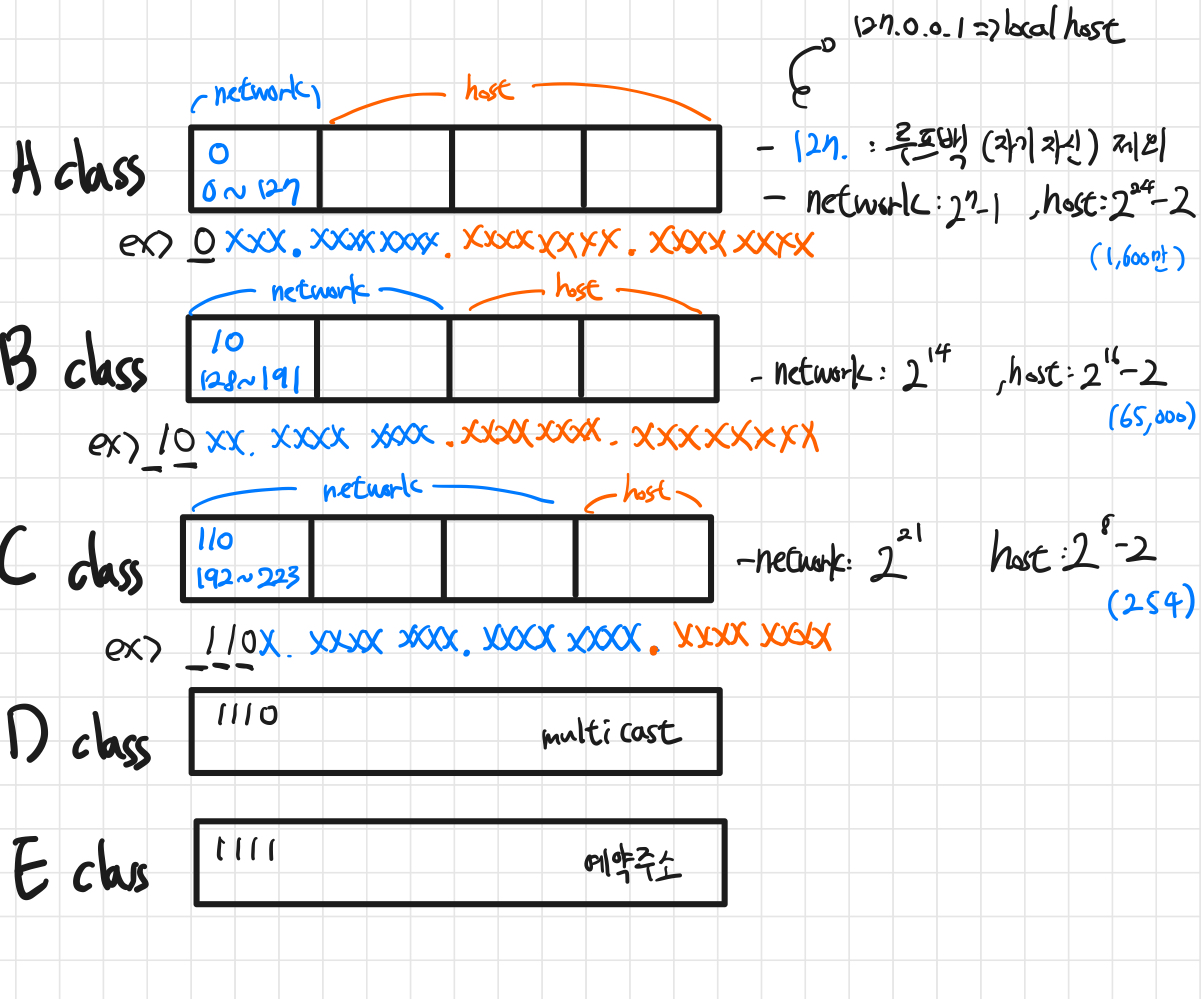 127.0.0.1 => local host
network host
A class
0
0 ~ 127
- 127. : 루프백 (자기 자신) 제외
- network : 2^7-1 , host : 2^24-2
(1,600만)
ex) 0XXX.XXXXXXX.XXXXXXXX.XXXXXXXX
network host
B class
10
128~191
- network : 2^14 , host : 2^16-2
(65,000)
ex) 10XX. XXXX XXX.XXXXXXXX.XXXXXXXX
network host
C class
110
192~223
- network : 2^21 host : 2^8-2
(254)
ex) 110X. XXXX XXX.XXXX XXXX.XXXX XXXX
D class
1110 multi cast
E class
1111 예약주소